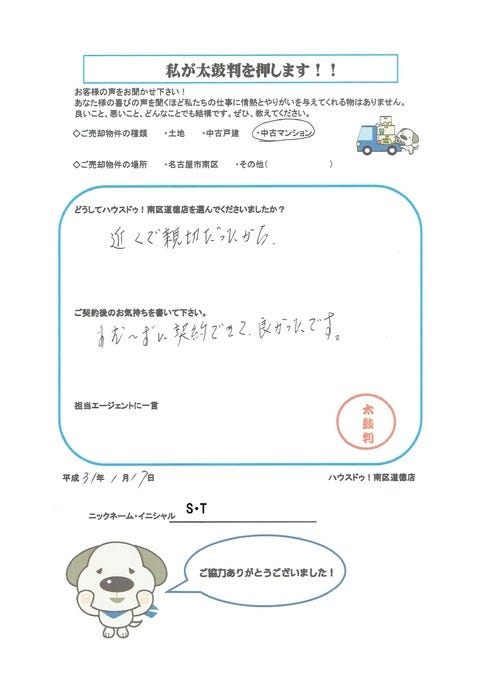 私が太鼓判を押します！！
お客様の声をお聞かせ下さい！
あなた様の喜びの声を聞くほど私たちの仕事に情熱とやりがいを与えてくれる物はありません。
良いこと、悪いこと、どんなことでも結構です。ぜひ、教えてください。
◇ご売却物件の種類　・土地　・中古戸建　・中古マンション
◇ご売却物件の場所　・名古屋市南区　・その他（　　　　　　）
どうしてハウスドゥ！南区道徳店を選んでくださいましたか？
近くで親切だったから.
ご契約後のお気持ちを書いて下さい。
すむーずに契約できて、良かったです。
担当エージェントに一言
太鼓判
平成 31年 1月 17日　ハウスドゥ！南区道徳店
ニックネーム・イニシャル　S・T
ご協力ありがとうございました！